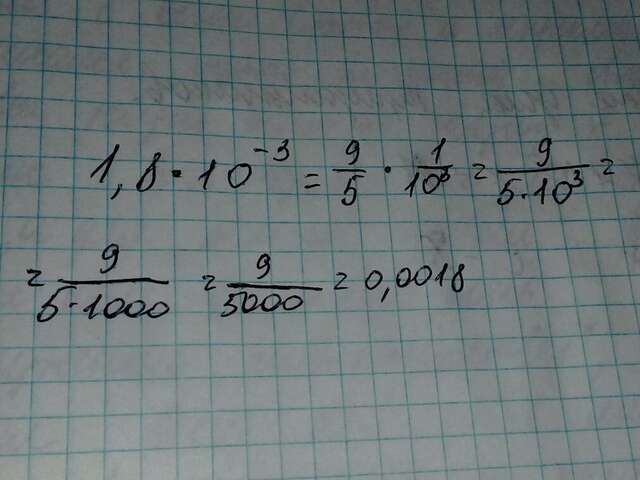 1,8 · 10⁻³ = 9/5 · 1/10³ = 9/(5·10³) =
= 9/(5·1000) = 9/5000 = 0,0018